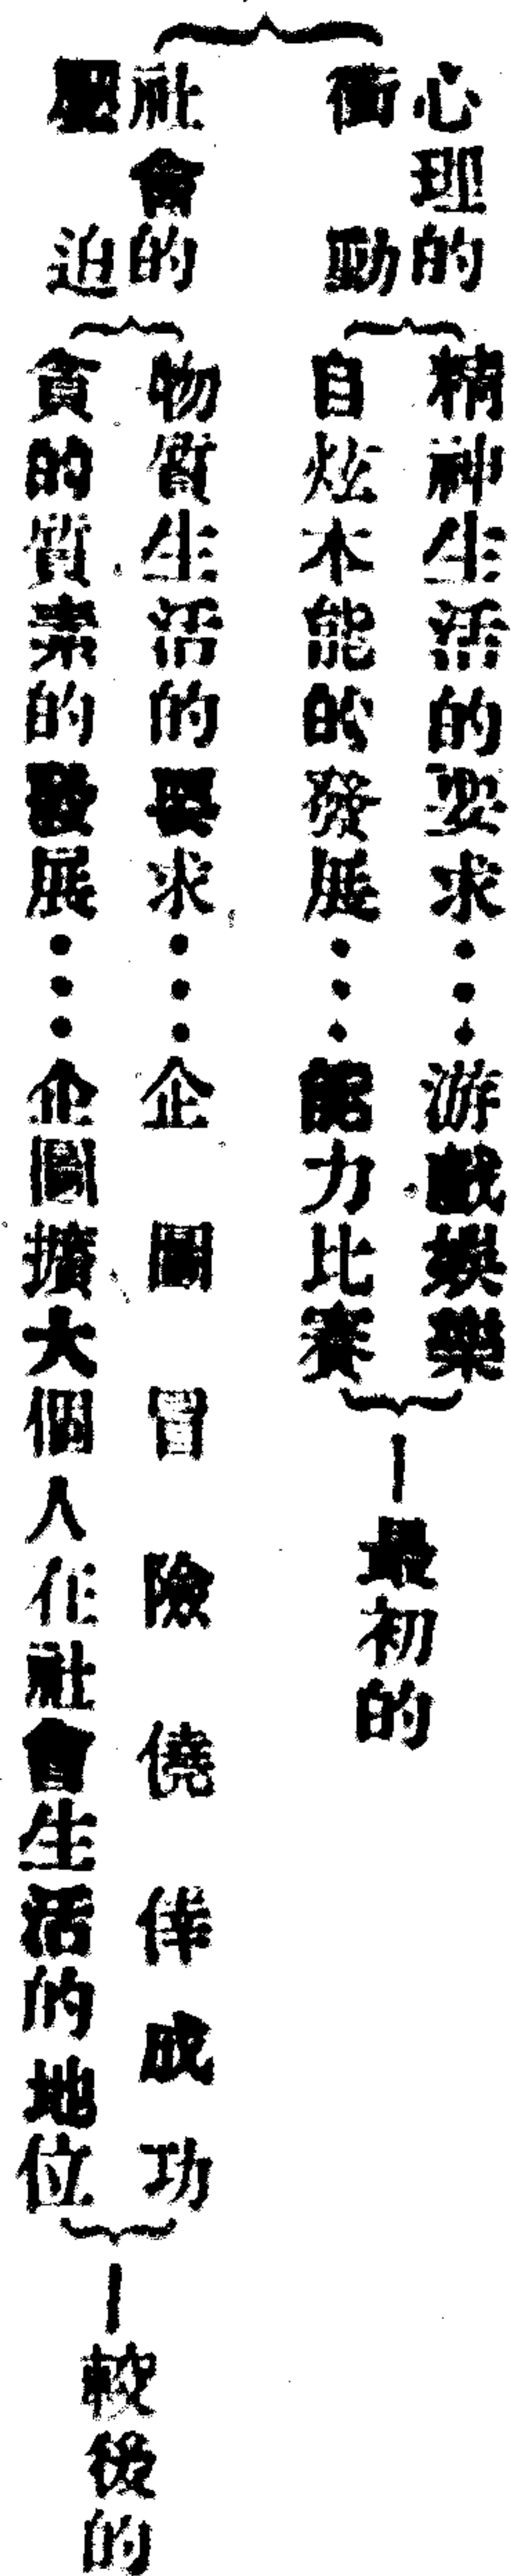 心理的
衝動
精神生活的要求・・・游戲娛樂
自炫本能的發展・・・能力比賽
—最初的
社會的
壓迫
物質生活的要求・・・企圖冒險僥倖成功
貪的質素的發展・・・企圖擴大個人在社會生活的地位
—較後的